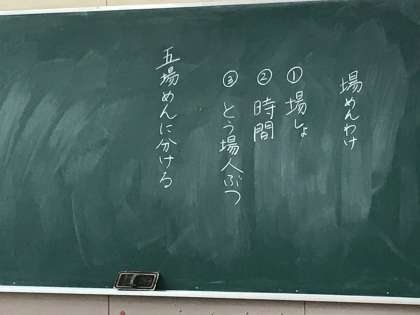 場めんわけ
①場しょ
②時間
③とう場人ぶつ
五場めんに分ける